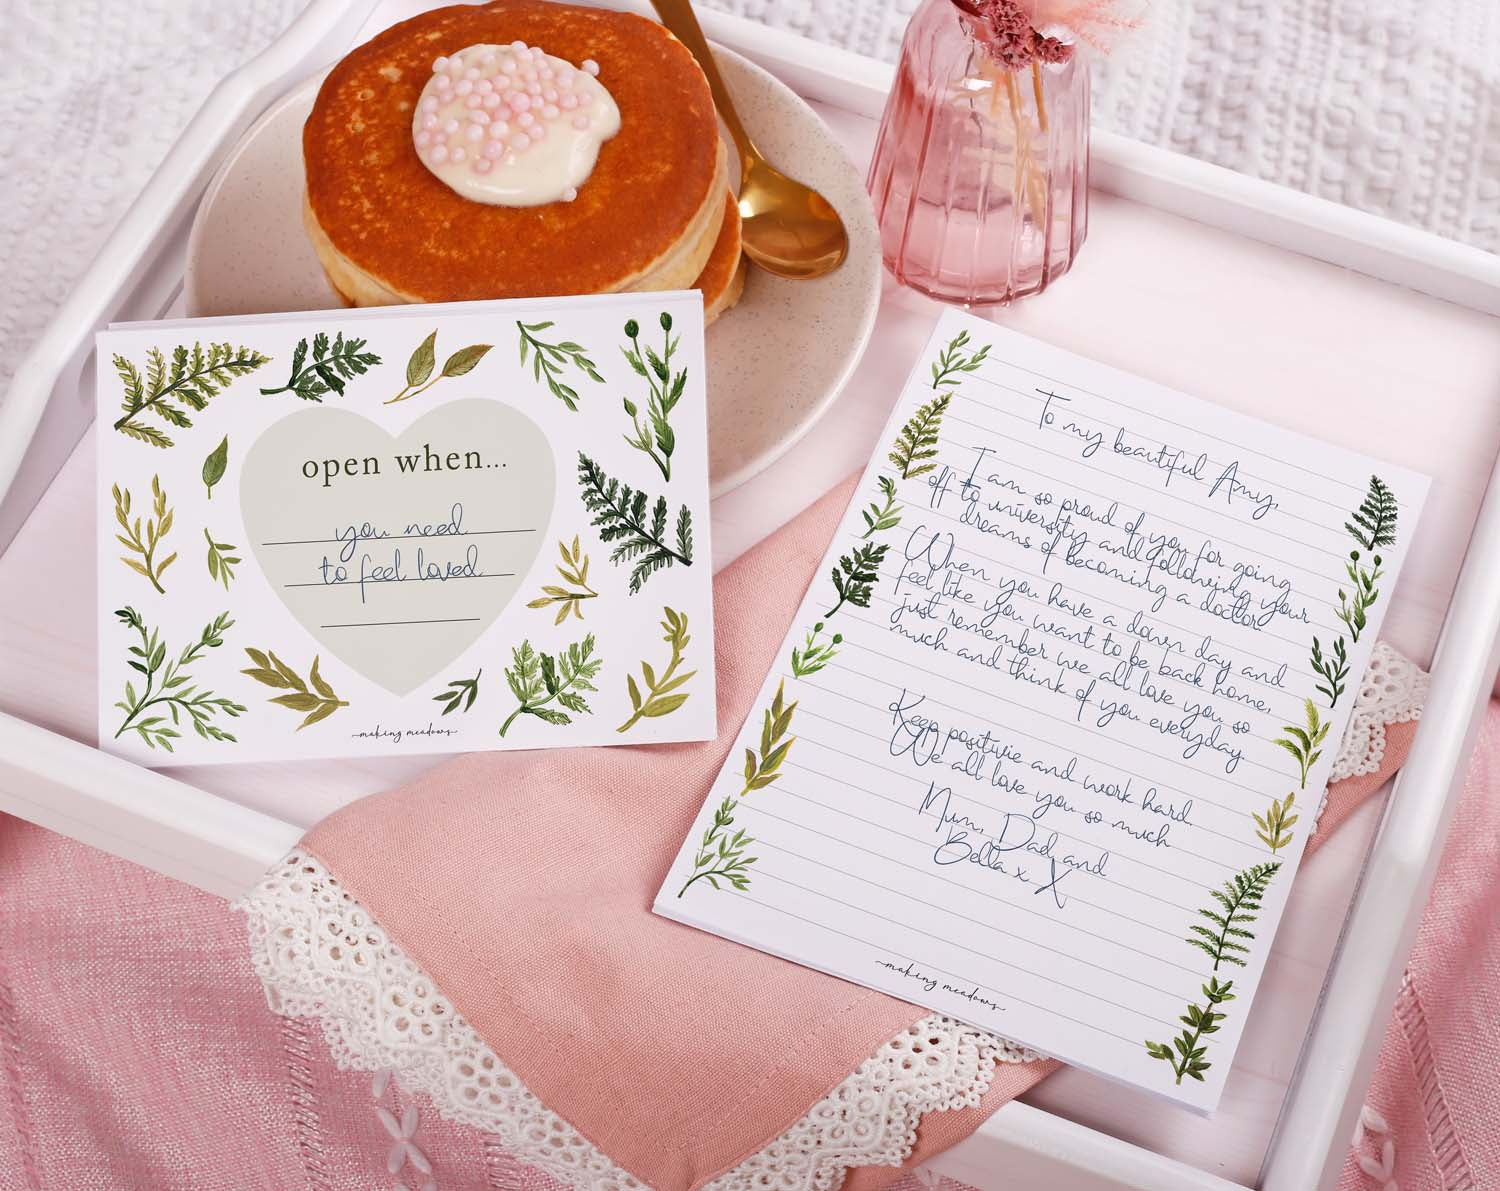 open when...
you need
to feel loved
making meadows
To my beautiful Amy,
I am so proud of you for going
off to university and following your
dreams of becoming a doctor.
When you have a down day and
feel like you want to be back home,
just remember we all love you so
much and think of you everyday.
Keep positivie and work hard.
We all love you so much
Mum, Dad and
Bella x X
making meadows